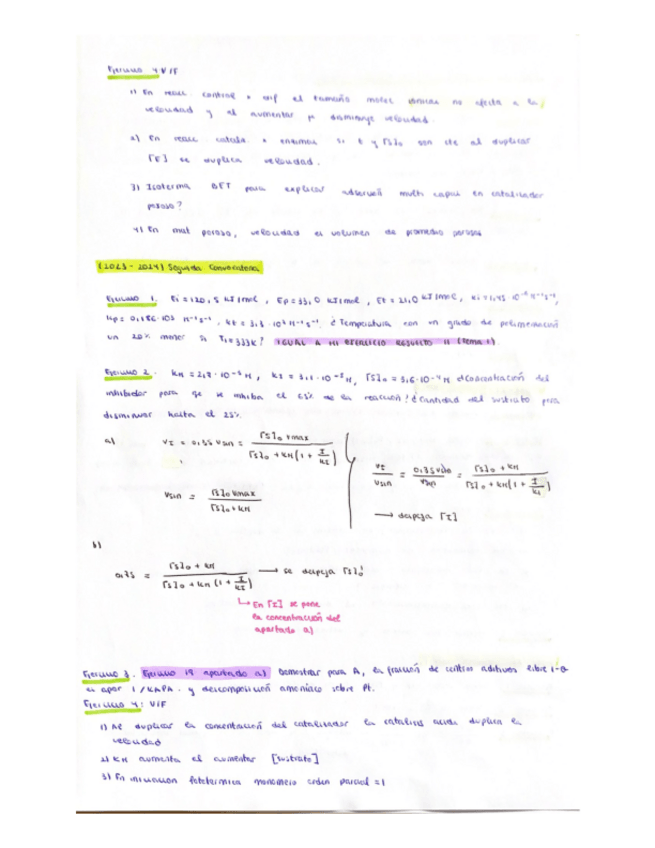 Ejercicio 4: V/F
1) En reacc control x dif el tamaño molec iónicas no afecta a la
velocidad y al aumentar μ disminuye velocidad.
2) En reacc cataliz. x enzimas si t y [S]o son cte al duplicar
[E] se duplica velocidad.
3) Isoterma BET para explicar adsorción multi capas en catalizador
poroso?
4) En mat poroso, velocidad es volumen de promedio
(2023 - 2024) Segunda Convocatoria
Ejercicio 1. Ei = 120,5 kJ/mol, Ep = 33,0 kJ/mol, Et = 21,0 kJ/mol,
un 20% menor si T1=333K? IGUAL A MI EJERCICIO RESUELTO 11 (tema 1).
Ejercicio 2. [S]o = 3,6·10⁻⁴ M ¿Concentración del
inhibidor para qe se inhiba el 65% de la reacción? ¿Cantidad del sustrato para
disminuir hasta el 25%.
a) vI = 0,35 vsin = [S]o vmax / [S]o + kM (1 + I/kI)
vsin = [S]o vmax / [S]o + kM
vI / vsin = 0,35 vsin / vsin = [S]o + kM / [S]o + kM (1 + I/kI)
⟶ despeja [I]
b)
0,75 = [S]o + kM / [S]o + kM (1 + I/kI) ⟶ se despeja [S]o'
↳ En [I] se pone
la concentración del
apartado a)
Ejercicio 3. Ejercicio 19 apartado a) Demostrar para A, la fracción de centros activos libre 1-θ
es apox 1/KAPA. y descomposición amoniaco sobre Pt.
Ejercicio 4: V/F
1) Al duplicar la concentración del catalizador la catálisis acida duplica la
velocidad
2) KM aumenta al aumentar [sustrato]
3) En iniciacion fototermica monomero orden parcial = 1